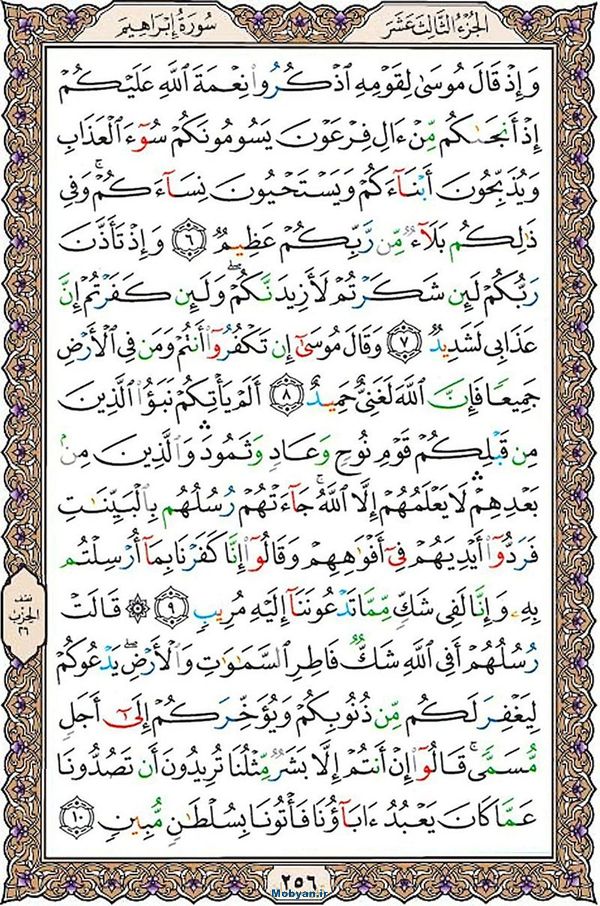 الجُزءُ الثَّالِثَ عَشَرَ
سُورَةُ إِبْرَاهِيمَ
وَإِذْ قَالَ مُوسَىٰ لِقَوْمِهِ ٱذْكُرُوا۟ نِعْمَةَ ٱللَّهِ عَلَيْكُمْ
إِذْ أَنجَىٰكُم مِّنْ ءَالِ فِرْعَوْنَ يَسُومُونَكُمْ سُوٓءَ ٱلْعَذَابِ
وَيُذَبِّحُونَ أَبْنَآءَكُمْ وَيَسْتَحْيُونَ نِسَآءَكُمْ ۚ وَفِى
ذَٰلِكُم بَلَآءٌ مِّن رَّبِّكُمْ عَظِيمٌ ٦ وَإِذْ تَأَذَّنَ
رَبُّكُمْ لَئِن شَكَرْتُمْ لَأَزِيدَنَّكُمْ ۖ وَلَئِن كَفَرْتُمْ إِنَّ
عَذَابِى لَشَدِيدٌ ٧ وَقَالَ مُوسَىٰٓ إِن تَكْفُرُوٓا۟ أَنتُمْ وَمَن فِى ٱلْأَرْضِ
جَمِيعًا فَإِنَّ ٱللَّهَ لَغَنِىٌّ حَمِيدٌ ٨ أَلَمْ يَأْتِكُمْ نَبَؤُا۟ ٱلَّذِينَ
مِن قَبْلِكُمْ قَوْمِ نُوحٍ وَعَادٍ وَثَمُودَ ۛ وَٱلَّذِينَ مِنۢ
بَعْدِهِمْ ۛ لَا يَعْلَمُهُمْ إِلَّا ٱللَّهُ ۚ جَآءَتْهُمْ رُسُلُهُم بِٱلْبَيِّنَٰتِ
فَرَدُّوٓا۟ أَيْدِيَهُمْ فِىٓ أَفْوَٰهِهِمْ وَقَالُوٓا۟ إِنَّا كَفَرْنَا بِمَآ أُرْسِلْتُم
بِهِۦ وَإِنَّا لَفِى شَكٍّ مِّمَّا تَدْعُونَنَآ إِلَيْهِ مُرِيبٍ ٩ ۞ قَالَتْ
رُسُلُهُمْ أَفِى ٱللَّهِ شَكٌّ فَاطِرِ ٱلسَّمَٰوَٰتِ وَٱلْأَرْضِ ۖ يَدْعُوكُمْ
لِيَغْفِرَ لَكُم مِّن ذُنُوبِكُمْ وَيُؤَخِّرَكُمْ إِلَىٰٓ أَجَلٍ
مُّسَمًّى ۚ قَالُوٓا۟ إِنْ أَنتُمْ إِلَّا بَشَرٌ مِّثْلُنَا تُرِيدُونَ أَن تَصُدُّونَا
عَمَّا كَانَ يَعْبُدُ ءَابَآؤُنَا فَأْتُونَا بِسُلْطَٰنٍ مُّبِينٍ ١٠
نصف
الحِزْب
٢٦
٢٥٦
Mobyan.ir